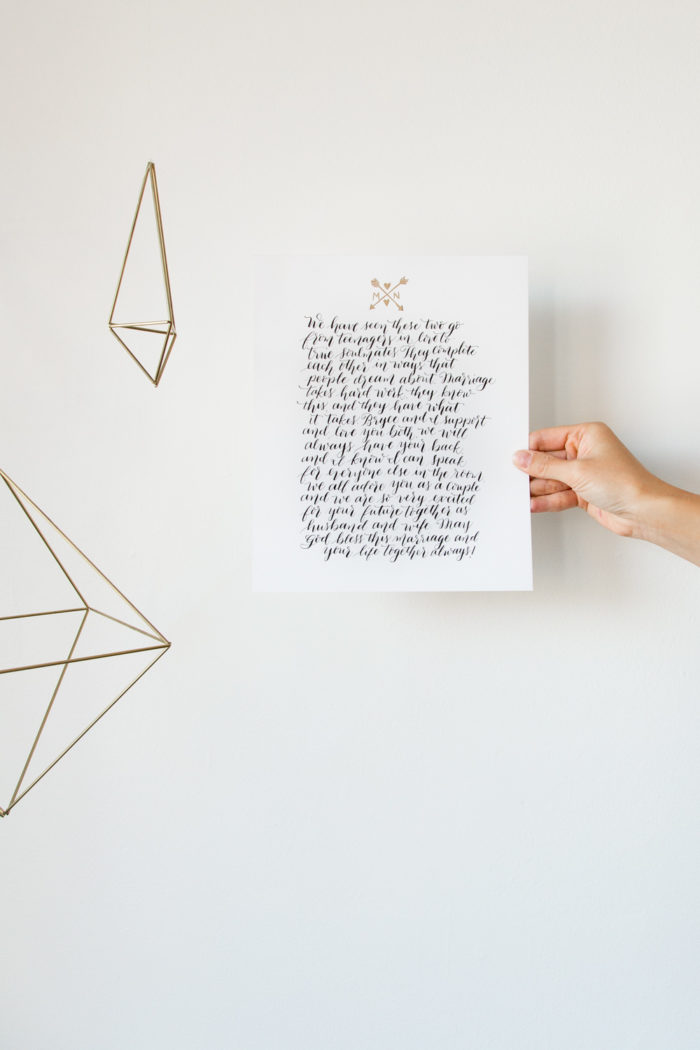 M N
We have seen these two go
from teenagers in love to
true soulmates They complete
each other in ways that
people dream about Marriage
takes hard work they know
this and they have what
it takes Bryce and I support
and love you both we will
always have your back
and I know I can speak
for everyone else in the room
we all adore you as a couple
and we are so very excited
for your future together as
husband and wife May
God bless this marriage and
your life together always!